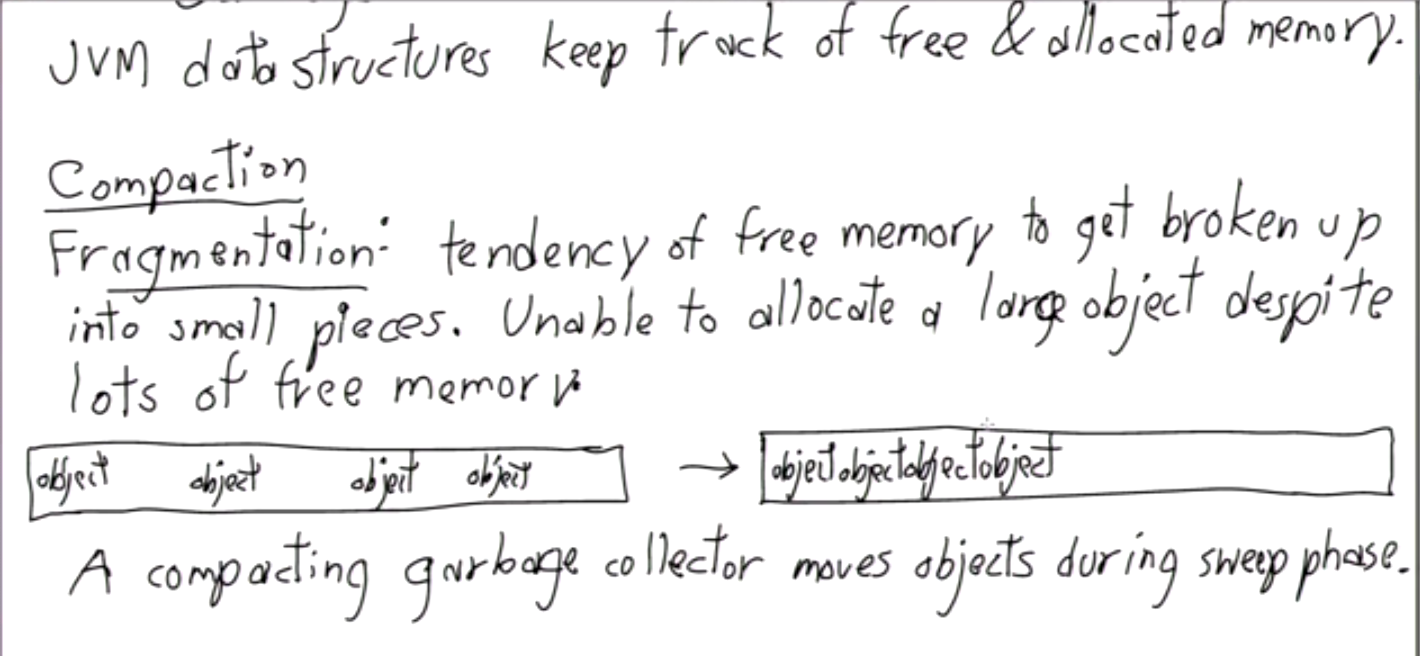 JVM data structures keep track of free & allocated memory.
Compaction
Fragmentation: tendency of free memory to get broken up
into small pieces. Unable to allocate a large object despite
lots of free memory.
object object object object → object object object object
A compacting garbage collector moves objects during sweep phase.